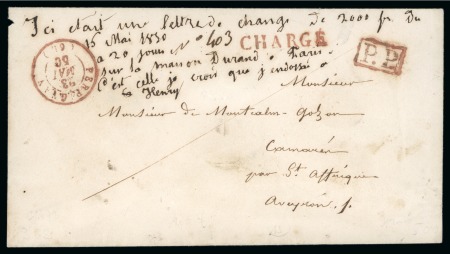 Ici était un lettre de change de 2000 fr. du
15 Mai 1850
à 20 jours N° 403
CHARGÉ
P.P.
sur la maison Durand à Paris
C'est celle je crois que j'endossai
Henry
PERPIGNAN
23
MAI
50
(65)
Monsieur
Monsieur de Montcalm-Gozon
Camarès
par St Affrique
Aveyron